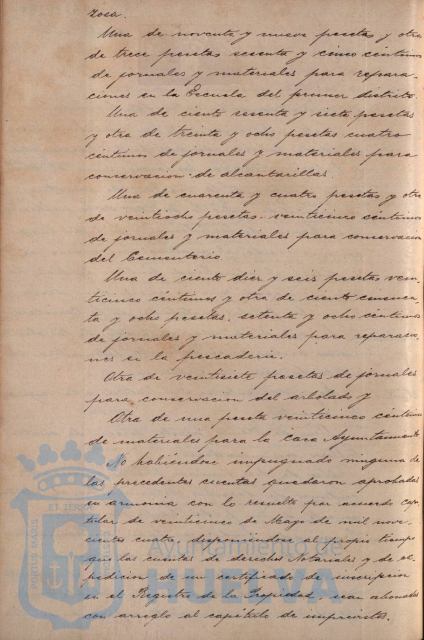 zosa.
Una de noventa y nueve pesetas y otra
de trece pesetas sesenta y cinco céntimos
de jornales y materiales para repara-
ciones en la Escuela del primer distrito.
Una de ciento sesenta y siete pesetas
y otra de treinta y ocho pesetas cuatro
céntimos de jornales y materiales para
conservacion de alcantarillas.
Una de cuarenta y cuatro pesetas y otra
de veintiocho pesetas veinticinco céntimos
de jornales y materiales para conservacion
del Cementerio
Una de ciento diez y seis pesetas vein-
ticinco céntimos y otra de ciento cincuen-
ta y ocho pesetas, setenta y ocho céntimos
de jornales y materiales para reparacio-
nes en la pescaderia.
Otra de veintisiete pesetas de jornales
para conservacion del arbolado y
Otra de una peseta veinticinco céntimos
de materiales para la Casa Ayuntamiento
No habiéndose impugnado ninguna de
las precedentes cuentas quedaron aprobadas
en armonia con lo resuelto por acuerdo capi-
tular de veinticinco de Mayo de mil nove-
cientos cuatro, disponiéndose al propio tiempo
que las cuentas de derechos Notariales y de es-
pedicion de un certificado de inscripcion
en el Registro de la Propiedad, sean abonadas
con arreglo al capítulo de imprevistos.
Ayuntamiento de
HUELVA
PORTUS MARIS
ET TERRAE